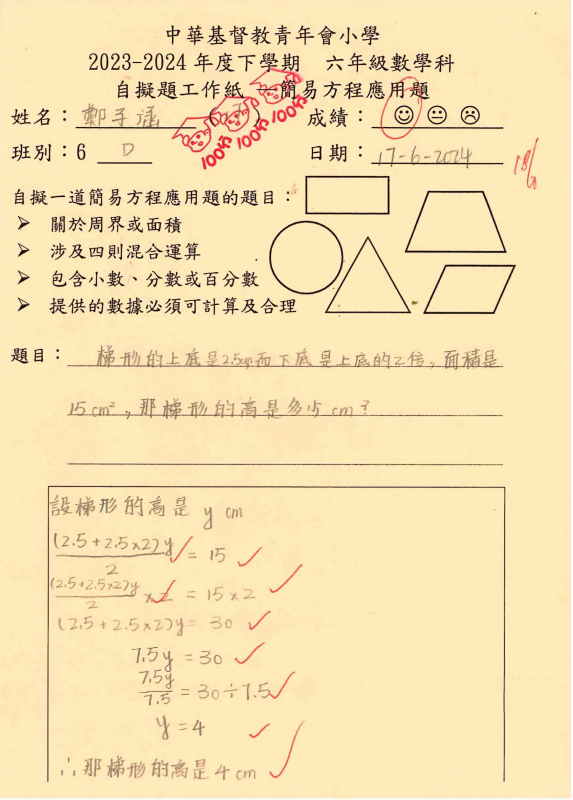 中華基督教青年會小學
2023-2024 年度下學期 六年級數學科
自擬題工作紙 — 簡易方程應用題
姓名：鄭子涵 ( ) 成績：
100分 100分 100分
班別：6 D 日期：17-6-2024
自擬一道簡易方程應用題的題目：
➢ 關於周界或面積
➢ 涉及四則混合運算
➢ 包含小數、分數或百分數
➢ 提供的數據必須可計算及合理
題目：梯形的上底是2.5cm而下底是上底的2倍，面積是
15cm²，那梯形的高是多少cm？
設梯形的高是 y cm
(2.5+2.5×2)y/2 = 15
(2.5+2.5×2)y/2 ×2 = 15×2
(2.5+2.5×2)y = 30
7.5y = 30
7.5y/7.5 = 30÷7.5
y = 4
∴那梯形的高是4cm